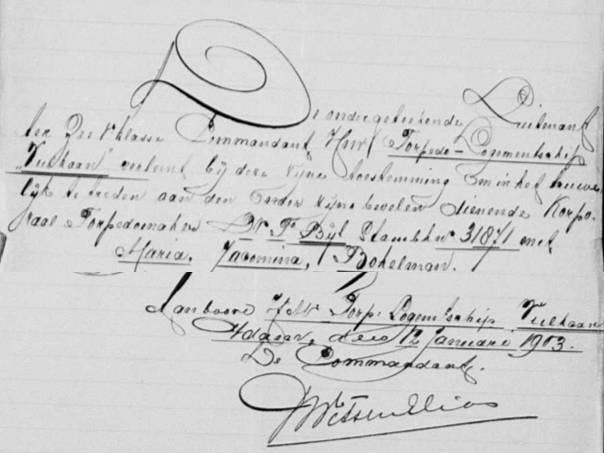 De ondergeteekende Luitenant
ter Zee 1e klasse Commandant Hr Ms Torpedo-Logementschip
"Vulkaan" verleent bij deze zijne toestemming om in het huwe-
lijk te treden aan den onder zijne bevelen dienende Korpo-
raal Torpedomaker Bijl Stamb Nr 31871 met
Maria, Jacomina, Bokelman.
Aan boord Hr Ms Torp: Logementschip Vulkaan
Adam, den 12 Januari 1903.
De Commandant.